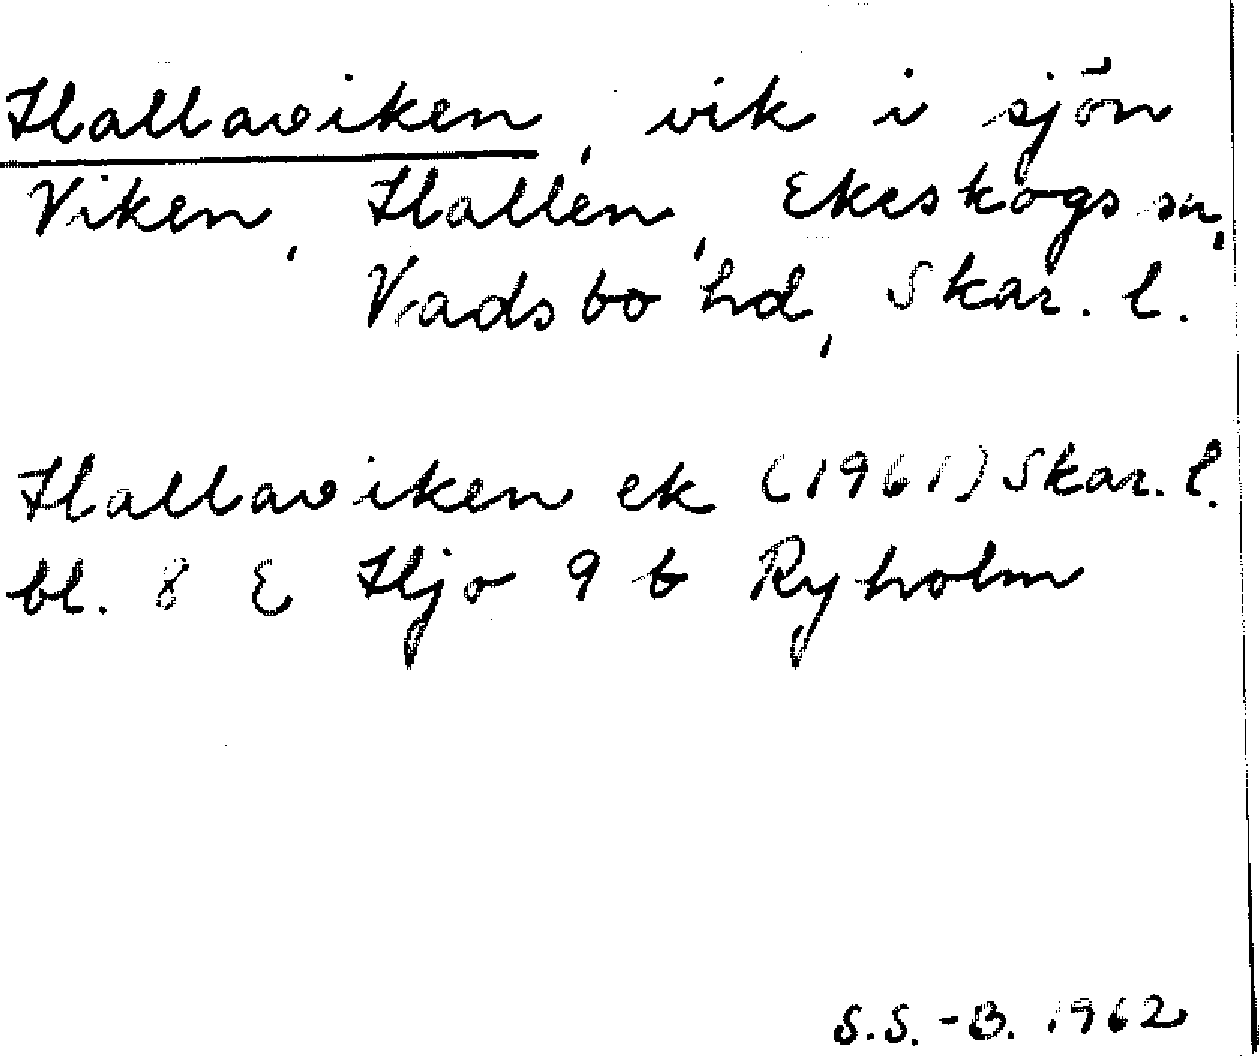 Hallaviken, vik i sjön
Viken, Hallen, Ekeskogs sn,
Vadsbo hd, Skar. l.
Hallaviken ek (1961) Skar. l.
bl. 8 E Hjo 9 b Ryholm
S.S.-B. 1962